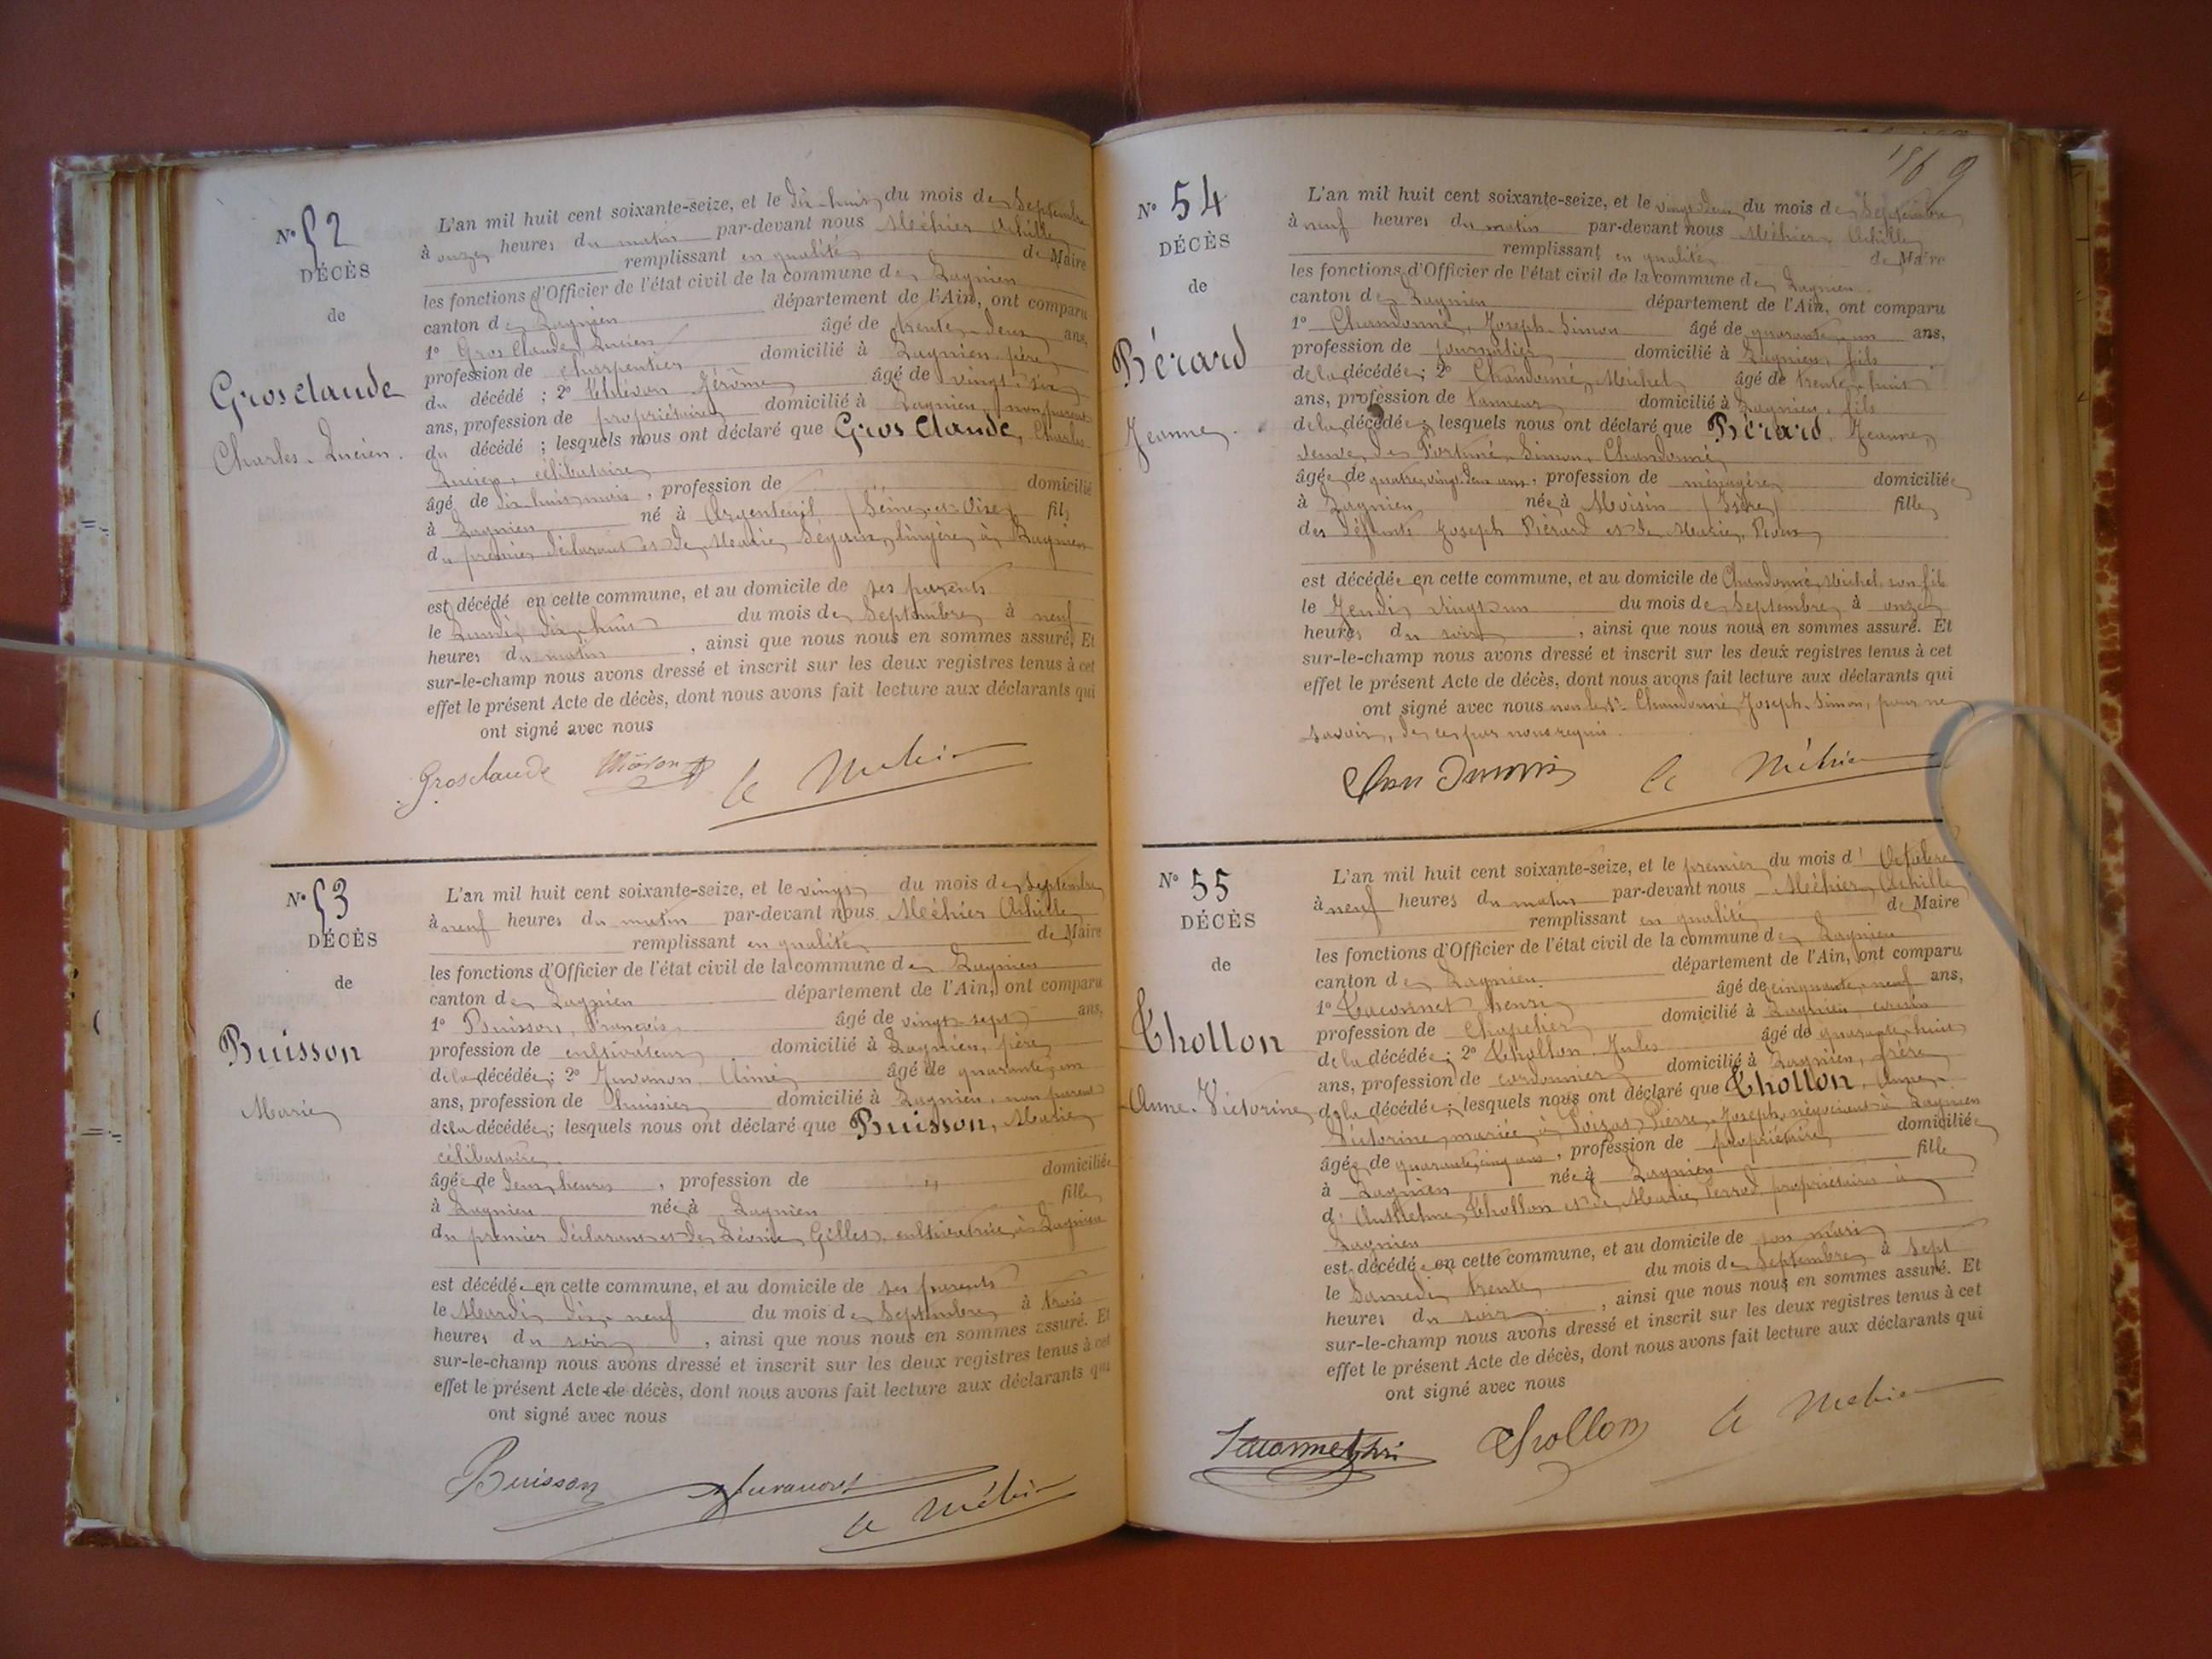 N° 52
DÉCÈS
de
Grosclaude
Charles-Lucien.
L'an mil huit cent soixante-seize, et le dix-huit du mois de Septembre
à onze heures du matin par-devant nous Méhier Achille
remplissant en qualité de Maire
les fonctions d'Officier de l'état civil de la commune de Lagnieu
canton de Lagnieu département de l'Ain, ont comparu
1° Gros Claude, Lucien âgé de trente-deux ans,
profession de charpentier domicilié à Lagnieu, père
du décédé ; 2° Jérôme âgé de vingt-six
ans, profession de propriétaire domicilié à Lagnieu, non parent
du décédé ; lesquels nous ont déclaré que Gros Claude, Charles-
Lucien, célibataire
âgé de dix-huit mois, profession de domicilié
à Lagnieu né à Argenteuil (Seine-et-Oise) fils
du premier déclarant et de Marie Séguin, lingère à Lagnieu
est décédé en cette commune, et au domicile de ses parents
le Lundi dix-huit du mois de Septembre à neuf
heures du matin, ainsi que nous nous en sommes assuré. Et
sur-le-champ nous avons dressé et inscrit sur les deux registres tenus à cet
effet le présent Acte de décès, dont nous avons fait lecture aux déclarants qui
ont signé avec nous
Grosclaude A. Méhier
N° 53
DÉCÈS
de
Buisson
Marie
L'an mil huit cent soixante-seize, et le vingt du mois de Septembre
à neuf heures du matin par-devant nous Méhier Achille
remplissant en qualité de Maire
les fonctions d'Officier de l'état civil de la commune de Lagnieu
canton de Lagnieu département de l'Ain, ont comparu
1° Buisson, François âgé de vingt-sept ans,
profession de cultivateur domicilié à Lagnieu, père
de la décédée ; 2° Juvanon, Aimé âgé de quarante-un
ans, profession de huissier domicilié à Lagnieu, non parent
de la décédée ; lesquels nous ont déclaré que Buisson, Marie
célibataire
âgée de deux heures, profession de " domiciliée
à Lagnieu née à Lagnieu fille
du premier déclarant et de Gillet, cultivatrice à Lagnieu
est décédée en cette commune, et au domicile de ses parents
le Mardi dix-neuf du mois de Septembre à trois
heures du soir, ainsi que nous nous en sommes assuré. Et
sur-le-champ nous avons dressé et inscrit sur les deux registres tenus à cet
effet le présent Acte de décès, dont nous avons fait lecture aux déclarants qui
ont signé avec nous
Buisson Juvanon
A. Méhier
N° 54
DÉCÈS
de
Bérard
Jeanne
L'an mil huit cent soixante-seize, et le vingt-deux du mois de Septembre
à neuf heures du matin par-devant nous Méhier Achille
remplissant en qualité de Maire
les fonctions d'Officier de l'état civil de la commune de Lagnieu
canton de Lagnieu département de l'Ain, ont comparu
1° Chandonné, Joseph-Simon âgé de quarante-un ans,
profession de journalier domicilié à Lagnieu, fils
de la décédée ; 2° Chandonné, Michel âgé de trente-huit
ans, profession de tanneur domicilié à Lagnieu, fils
de la décédée ; lesquels nous ont déclaré que Bérard, Jeanne,
veuve de Fortuné-Simon Chandonné
âgée de quatre-vingt-deux ans, profession de ménagère domiciliée
à Lagnieu née à Moisin (Isère) fille
des défunts Joseph Bérard et de Marie Roux
est décédée en cette commune, et au domicile de Chandonné, Michel, son fils
le Jeudi vingt-un du mois de Septembre à onze
heures du soir, ainsi que nous nous en sommes assuré. Et
sur-le-champ nous avons dressé et inscrit sur les deux registres tenus à cet
effet le présent Acte de décès, dont nous avons fait lecture aux déclarants qui
ont signé avec nous non le Sr Chandonné, Joseph-Simon, pour ne
savoir, de ce par nous requis.
A. Méhier
N° 55
DÉCÈS
de
Thollon
Anne-Victorine
L'an mil huit cent soixante-seize, et le premier du mois d'Octobre
à neuf heures du matin par-devant nous Méhier Achille
remplissant en qualité de Maire
les fonctions d'Officier de l'état civil de la commune de Lagnieu
canton de Lagnieu département de l'Ain, ont comparu
1° Taconnet Henri âgé de cinquante-neuf ans,
profession de Chapelier domicilié à Lagnieu, cousin
de la décédée ; 2° Thollon Jules âgé de quarante-huit
ans, profession de cordonnier domicilié à Lagnieu, frère
de la décédée ; lesquels nous ont déclaré que Thollon, Anne-
Victorine, mariée à Loizat, Pierre-Joseph, négociant à Lagnieu
âgée de quarante-cinq ans, profession de propriétaire domiciliée
à Lagnieu née à Lagnieu fille
d'Anthelme Thollon et de Marie propriétaires à
Lagnieu
est décédée en cette commune, et au domicile de son mari
le Samedi trente du mois de Septembre à sept
heures du soir, ainsi que nous nous en sommes assuré. Et
sur-le-champ nous avons dressé et inscrit sur les deux registres tenus à cet
effet le présent Acte de décès, dont nous avons fait lecture aux déclarants qui
ont signé avec nous
Taconnet Hri Thollon A. Méhier